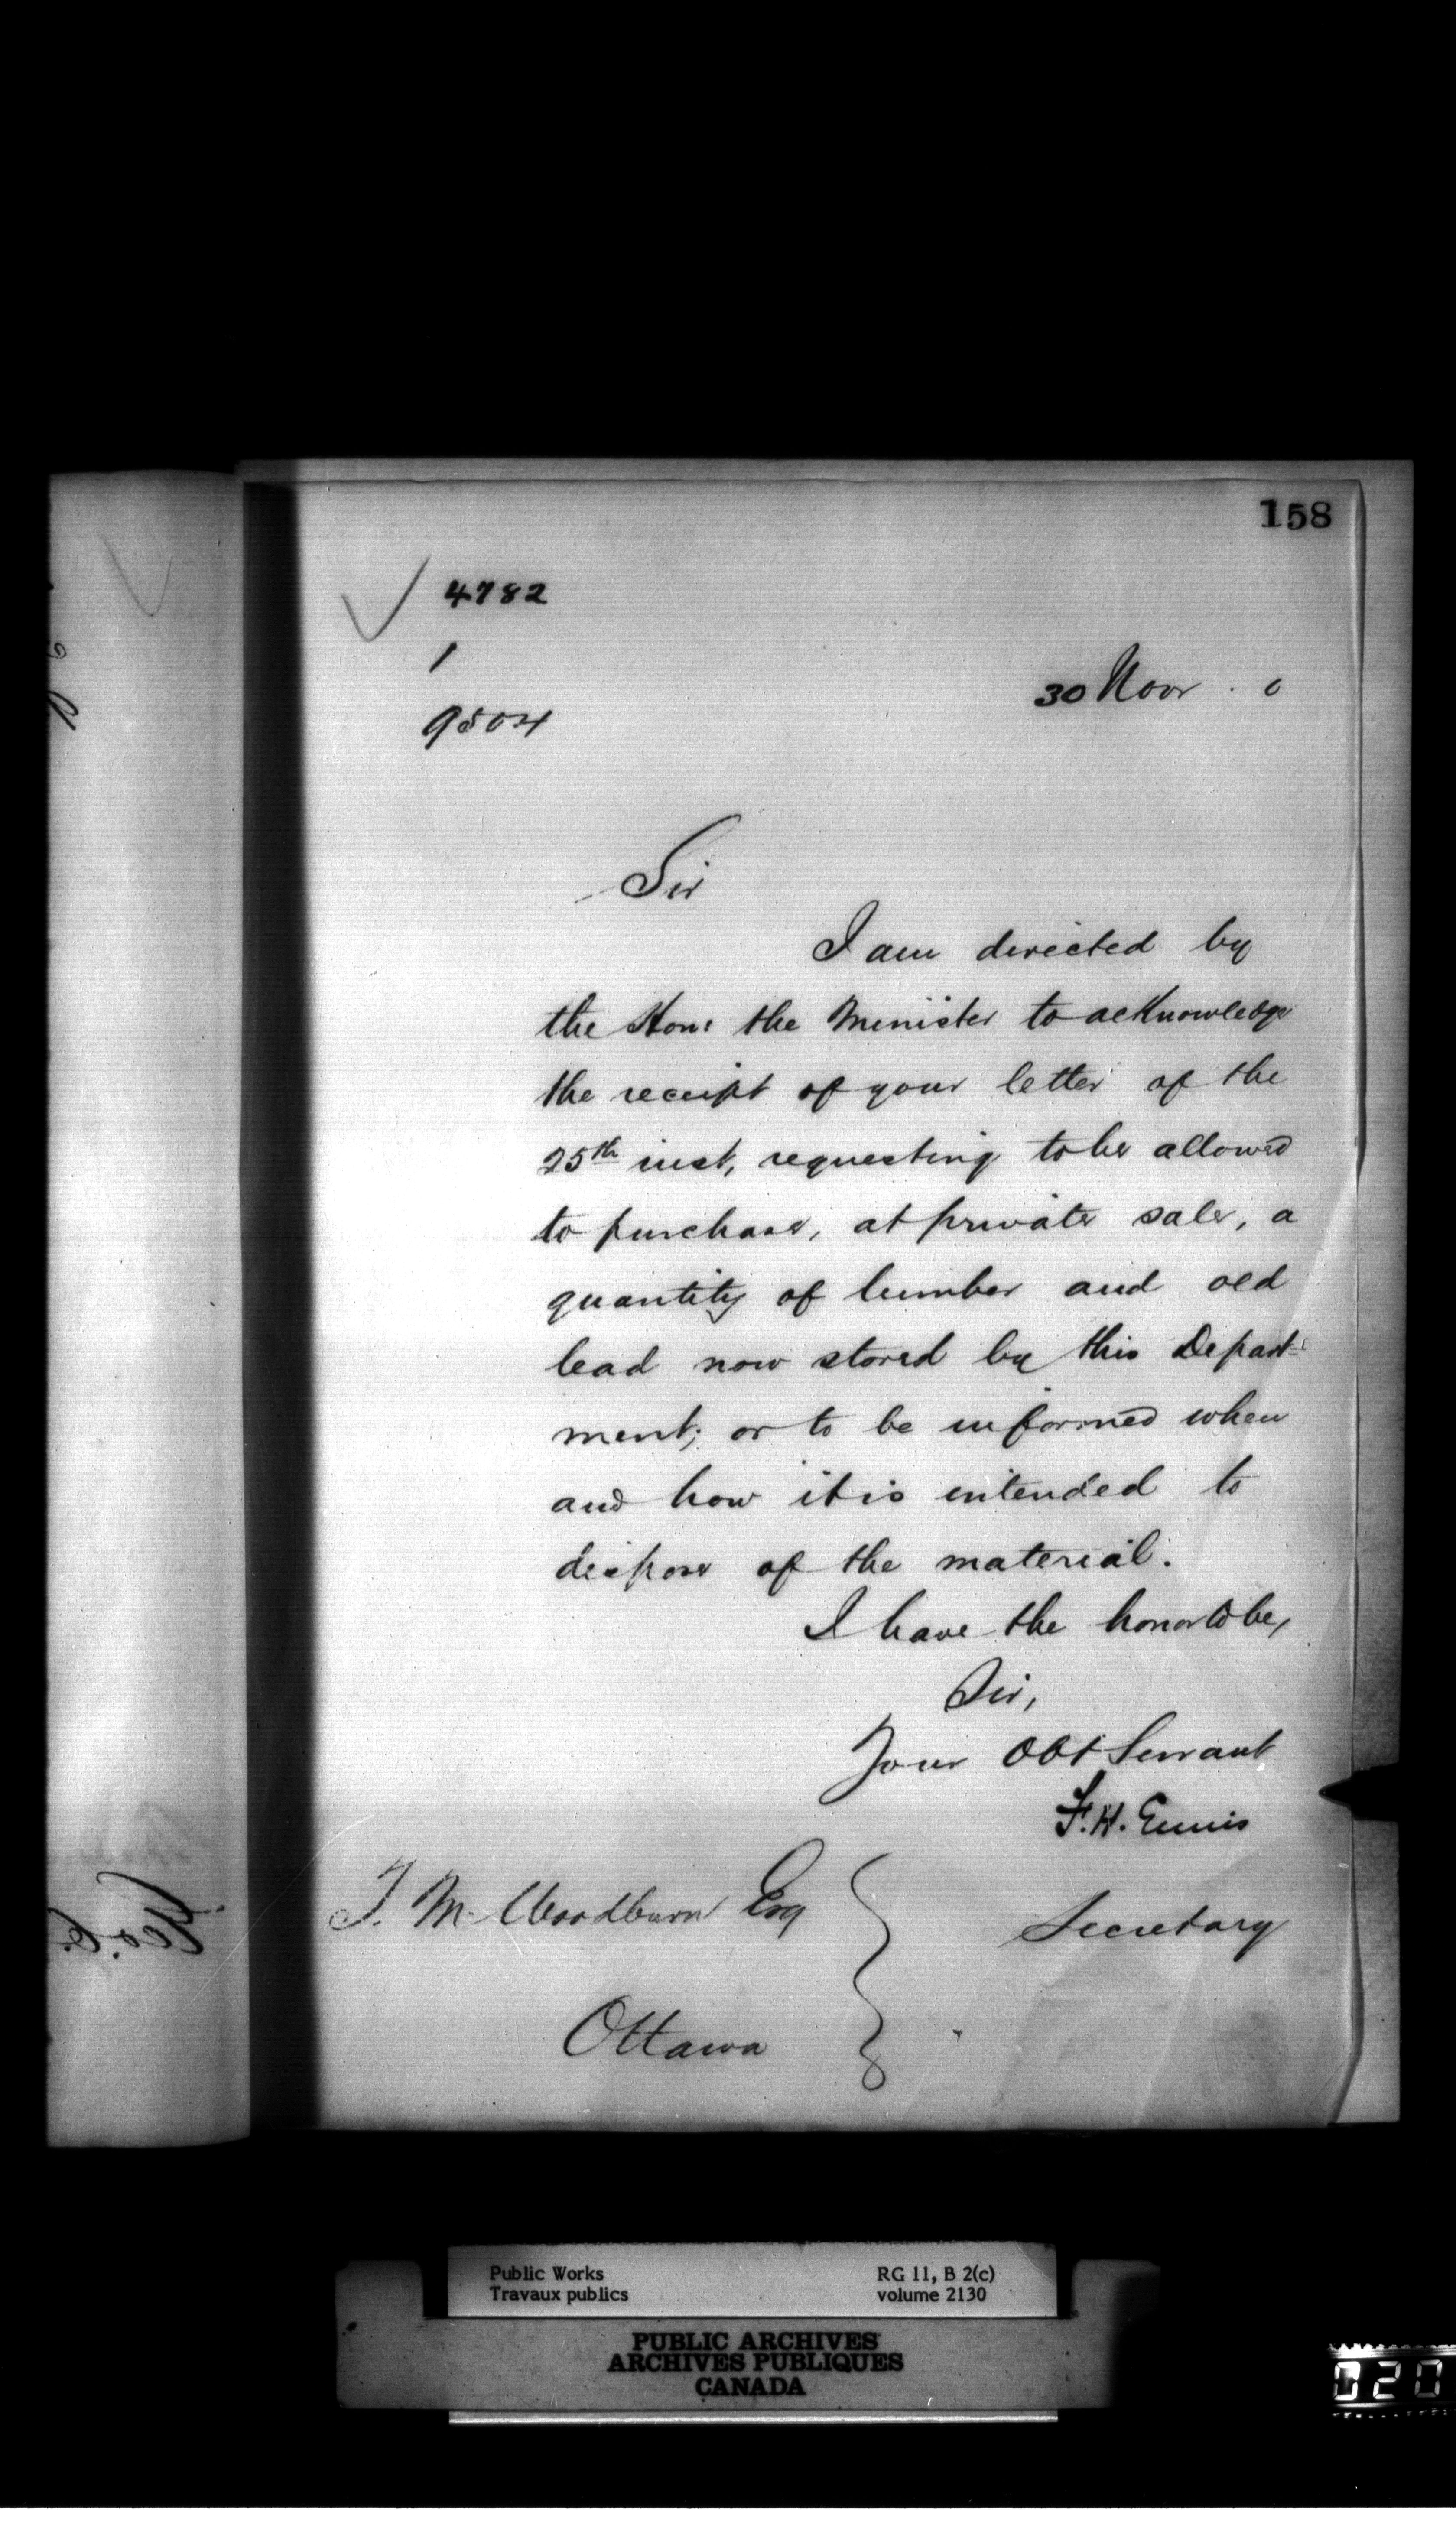 158
4782
1
9504
30 Novr. 0
Sir
I am directed by
the Hon: the Minister to acknowledge
the receipt of your letter of the
25th inst, requesting to be allowed
to purchase, at private sale, a
quantity of lumber and old
lead now stored by this Depart=
ment; or to be informed when
and how it is intended to
dispose of the material.
I have the honor to be,
Sir,
Your Obt Servant
F. H. Ennis
Secretary
T. M. Woodburn Esq
Ottawa
Geo. C.
Public Works
Travaux publics
RG 11, B 2(c)
volume 2130
PUBLIC ARCHIVES
ARCHIVES PUBLIQUES
CANADA
020